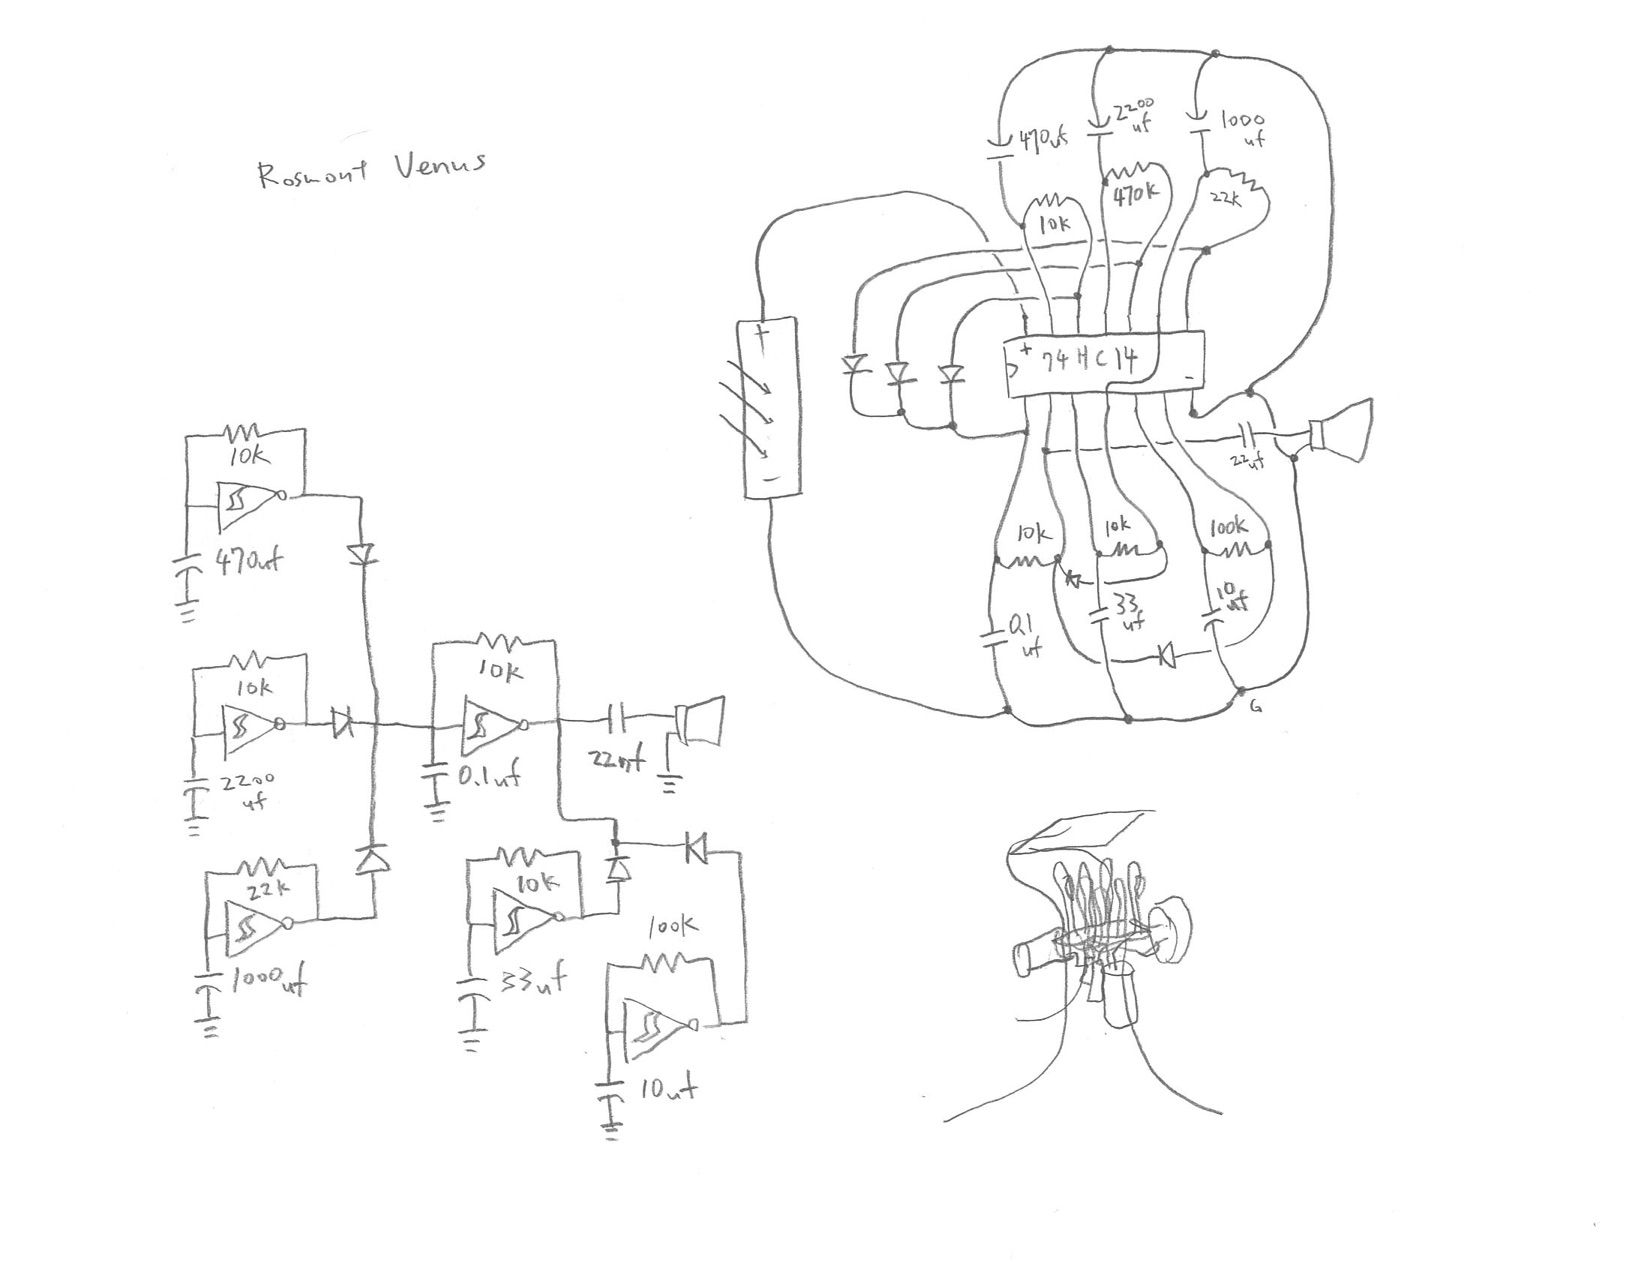 Rosmont Venus
10k
470uf
10k
2200
uf
22k
1000uf
10k
0.1uf
22nf
10k
33uf
100k
10uf
470uf
2200
uf
1000
uf
10k
470k
22k
+
-
+
74HC14
-
22
uf
10k
10k
100k
0.1
uf
33
uf
10
uf
G